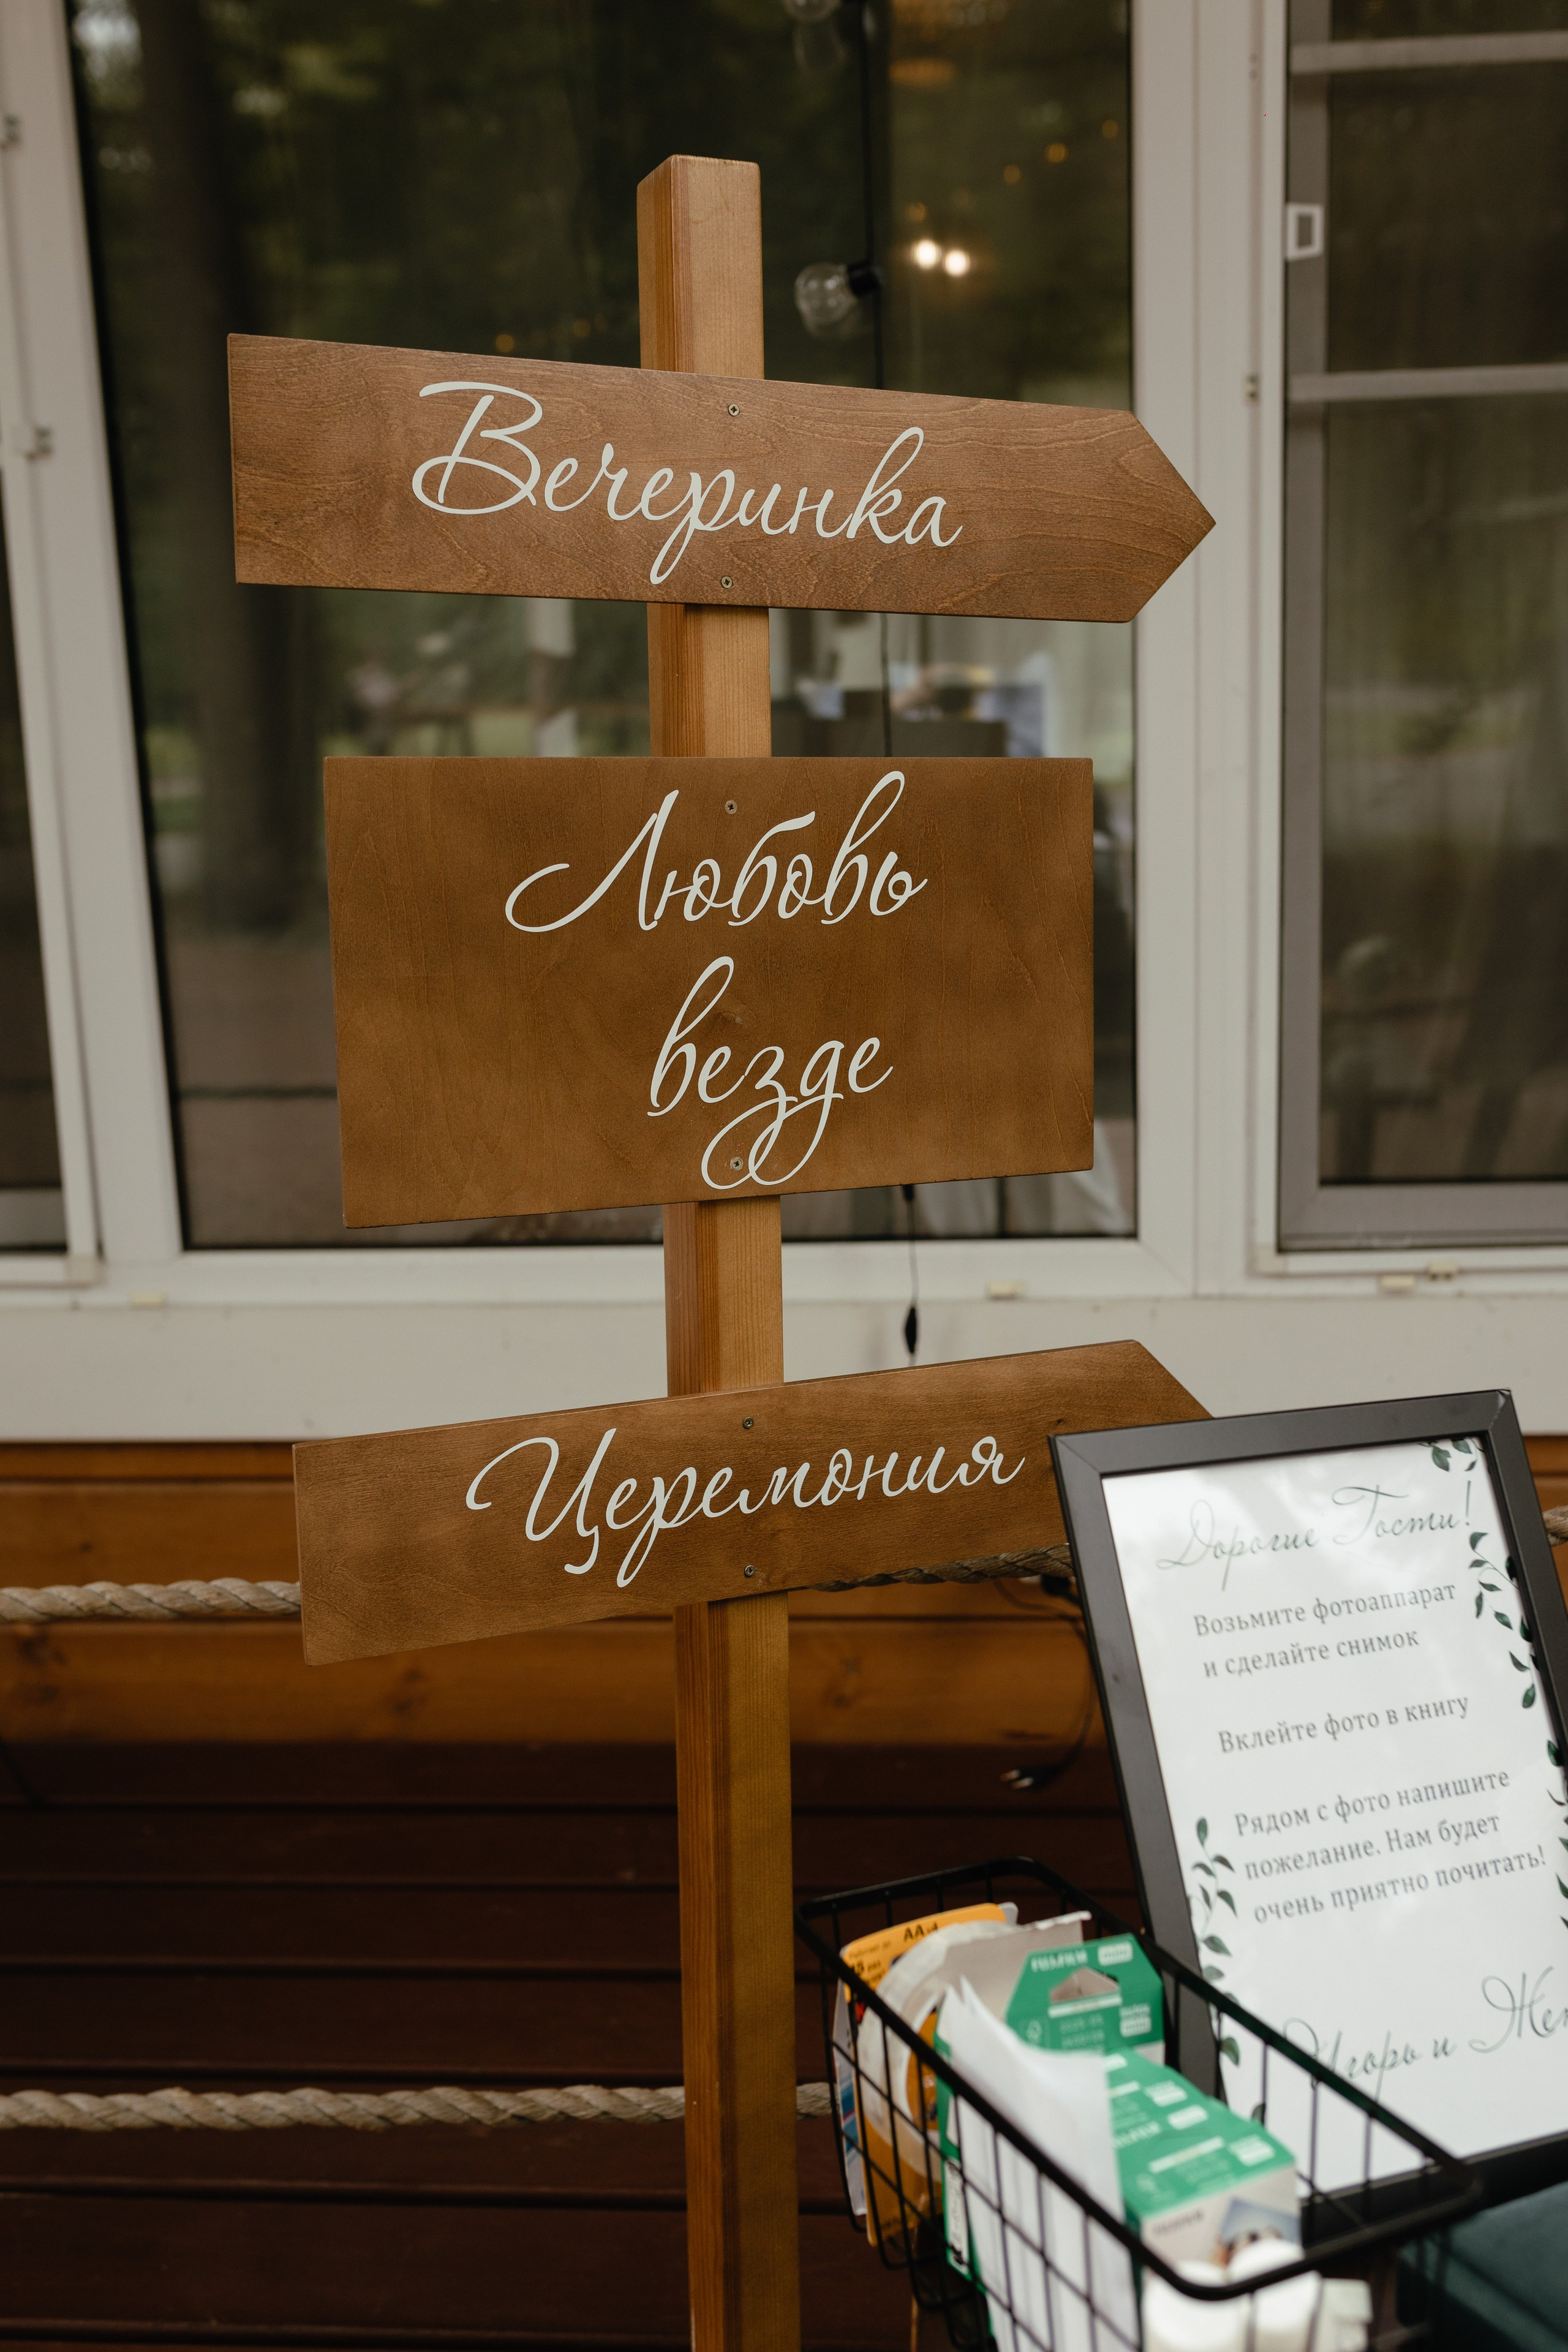 Вечеринка
Любовь
везде
Церемония
Дорогие Гости!
Возьмите фотоаппарат
и сделайте снимок
Вклейте фото в книгу
Рядом с фото напишите
пожелание. Нам будет
очень приятно почитать!
Игорь и